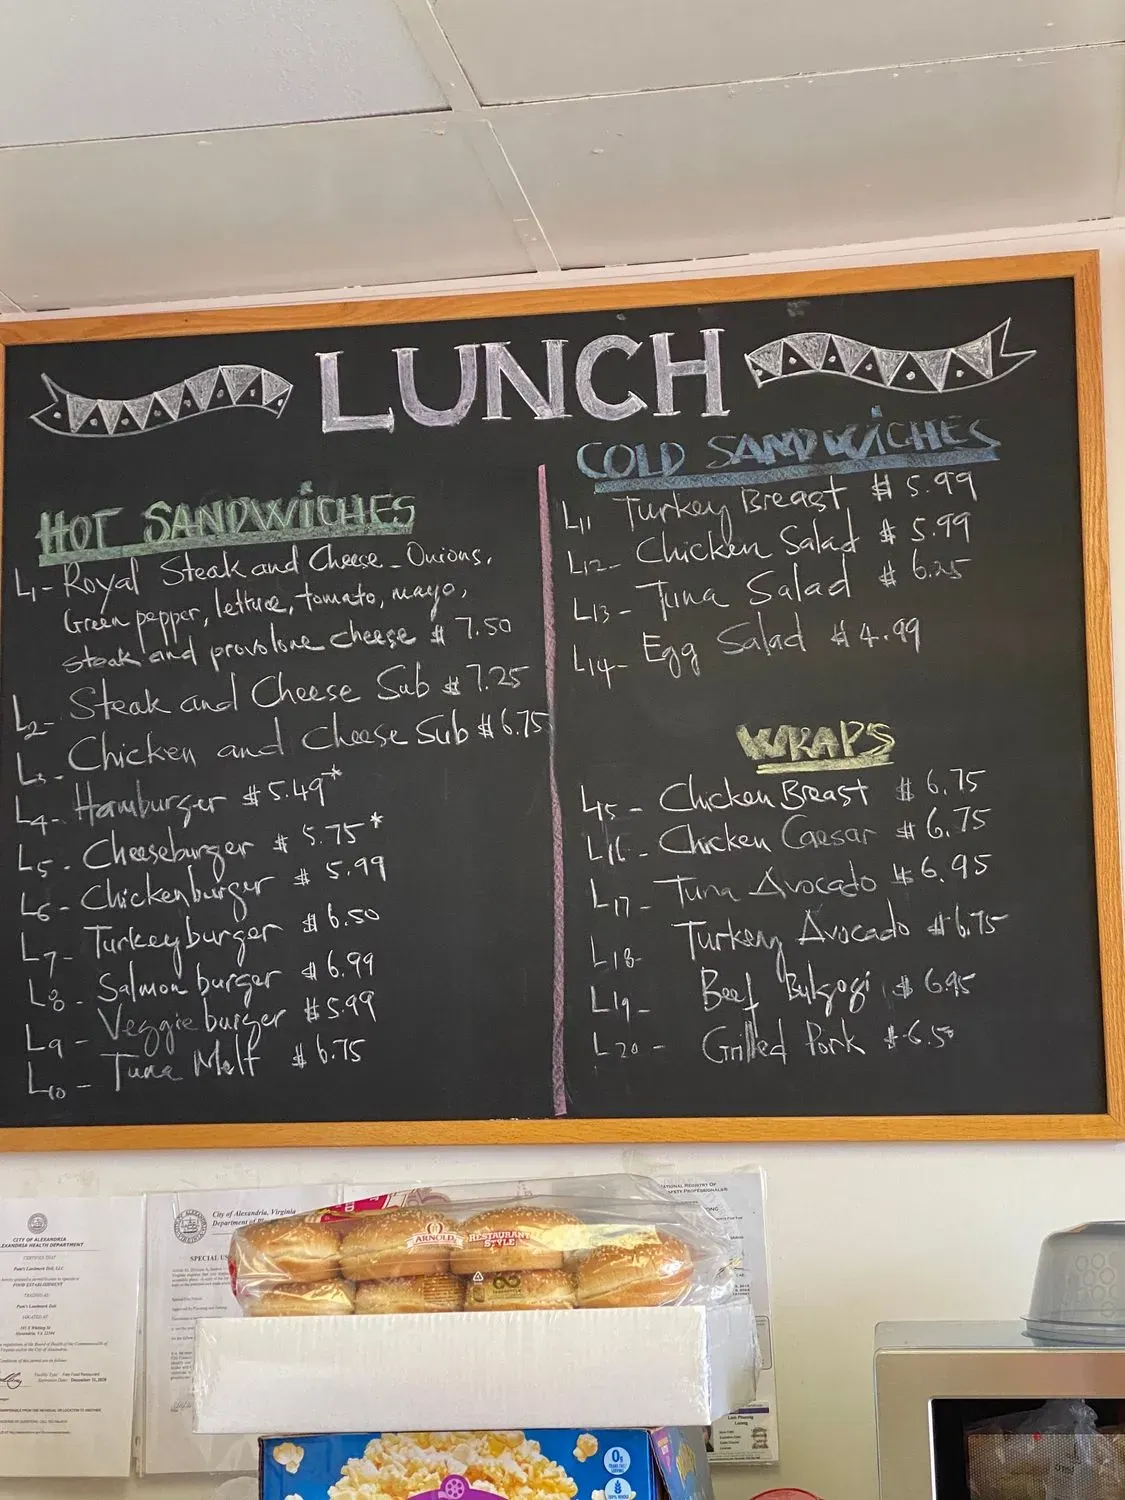 LUNCH
HOT SANDWICHES
L1- Royal Steak and Cheese - Onions,
Green pepper, lettuce, tomato, mayo,
steak and provolone cheese $ 7.50
L2- Steak and Cheese Sub $ 7.25
L3- Chicken and cheese Sub $ 6.75
L4- Hamburger $ 5.49*
L5- Cheeseburger $ 5.75*
L6- Chickenburger $ 5.99
L7- Turkeyburger $ 6.50
L8- Salmon burger $ 6.99
L9- Veggie burger $ 5.99
L10- Tuna Melt $ 6.75
COLD SANDWICHES
L11 Turkey Breast $ 5.99
L12- Chicken Salad $ 5.99
L13- Tuna Salad $ 6.25
L14- Egg Salad $ 4.99
WRAPS
L15- Chicken Breast $ 6.75
L16- Chicken Caesar $ 6.75
L17- Tuna Avocado $ 6.95
L18- Turkey Avocado $ 6.75
L19- Beef Bulgogi $ 6.95
L20- Grilled Pork $ 6.50
CITY OF ALEXANDRIA
ALEXANDRIA HEALTH DEPARTMENT
Pam's Landmark Deli, LLC
FOOD ESTABLISHMENT
Pam's Landmark Deli
LOCATED AT
City of Alexandria, Virginia
SPECIAL US
ARNOLD
RESTAURANT
STYLE
0g